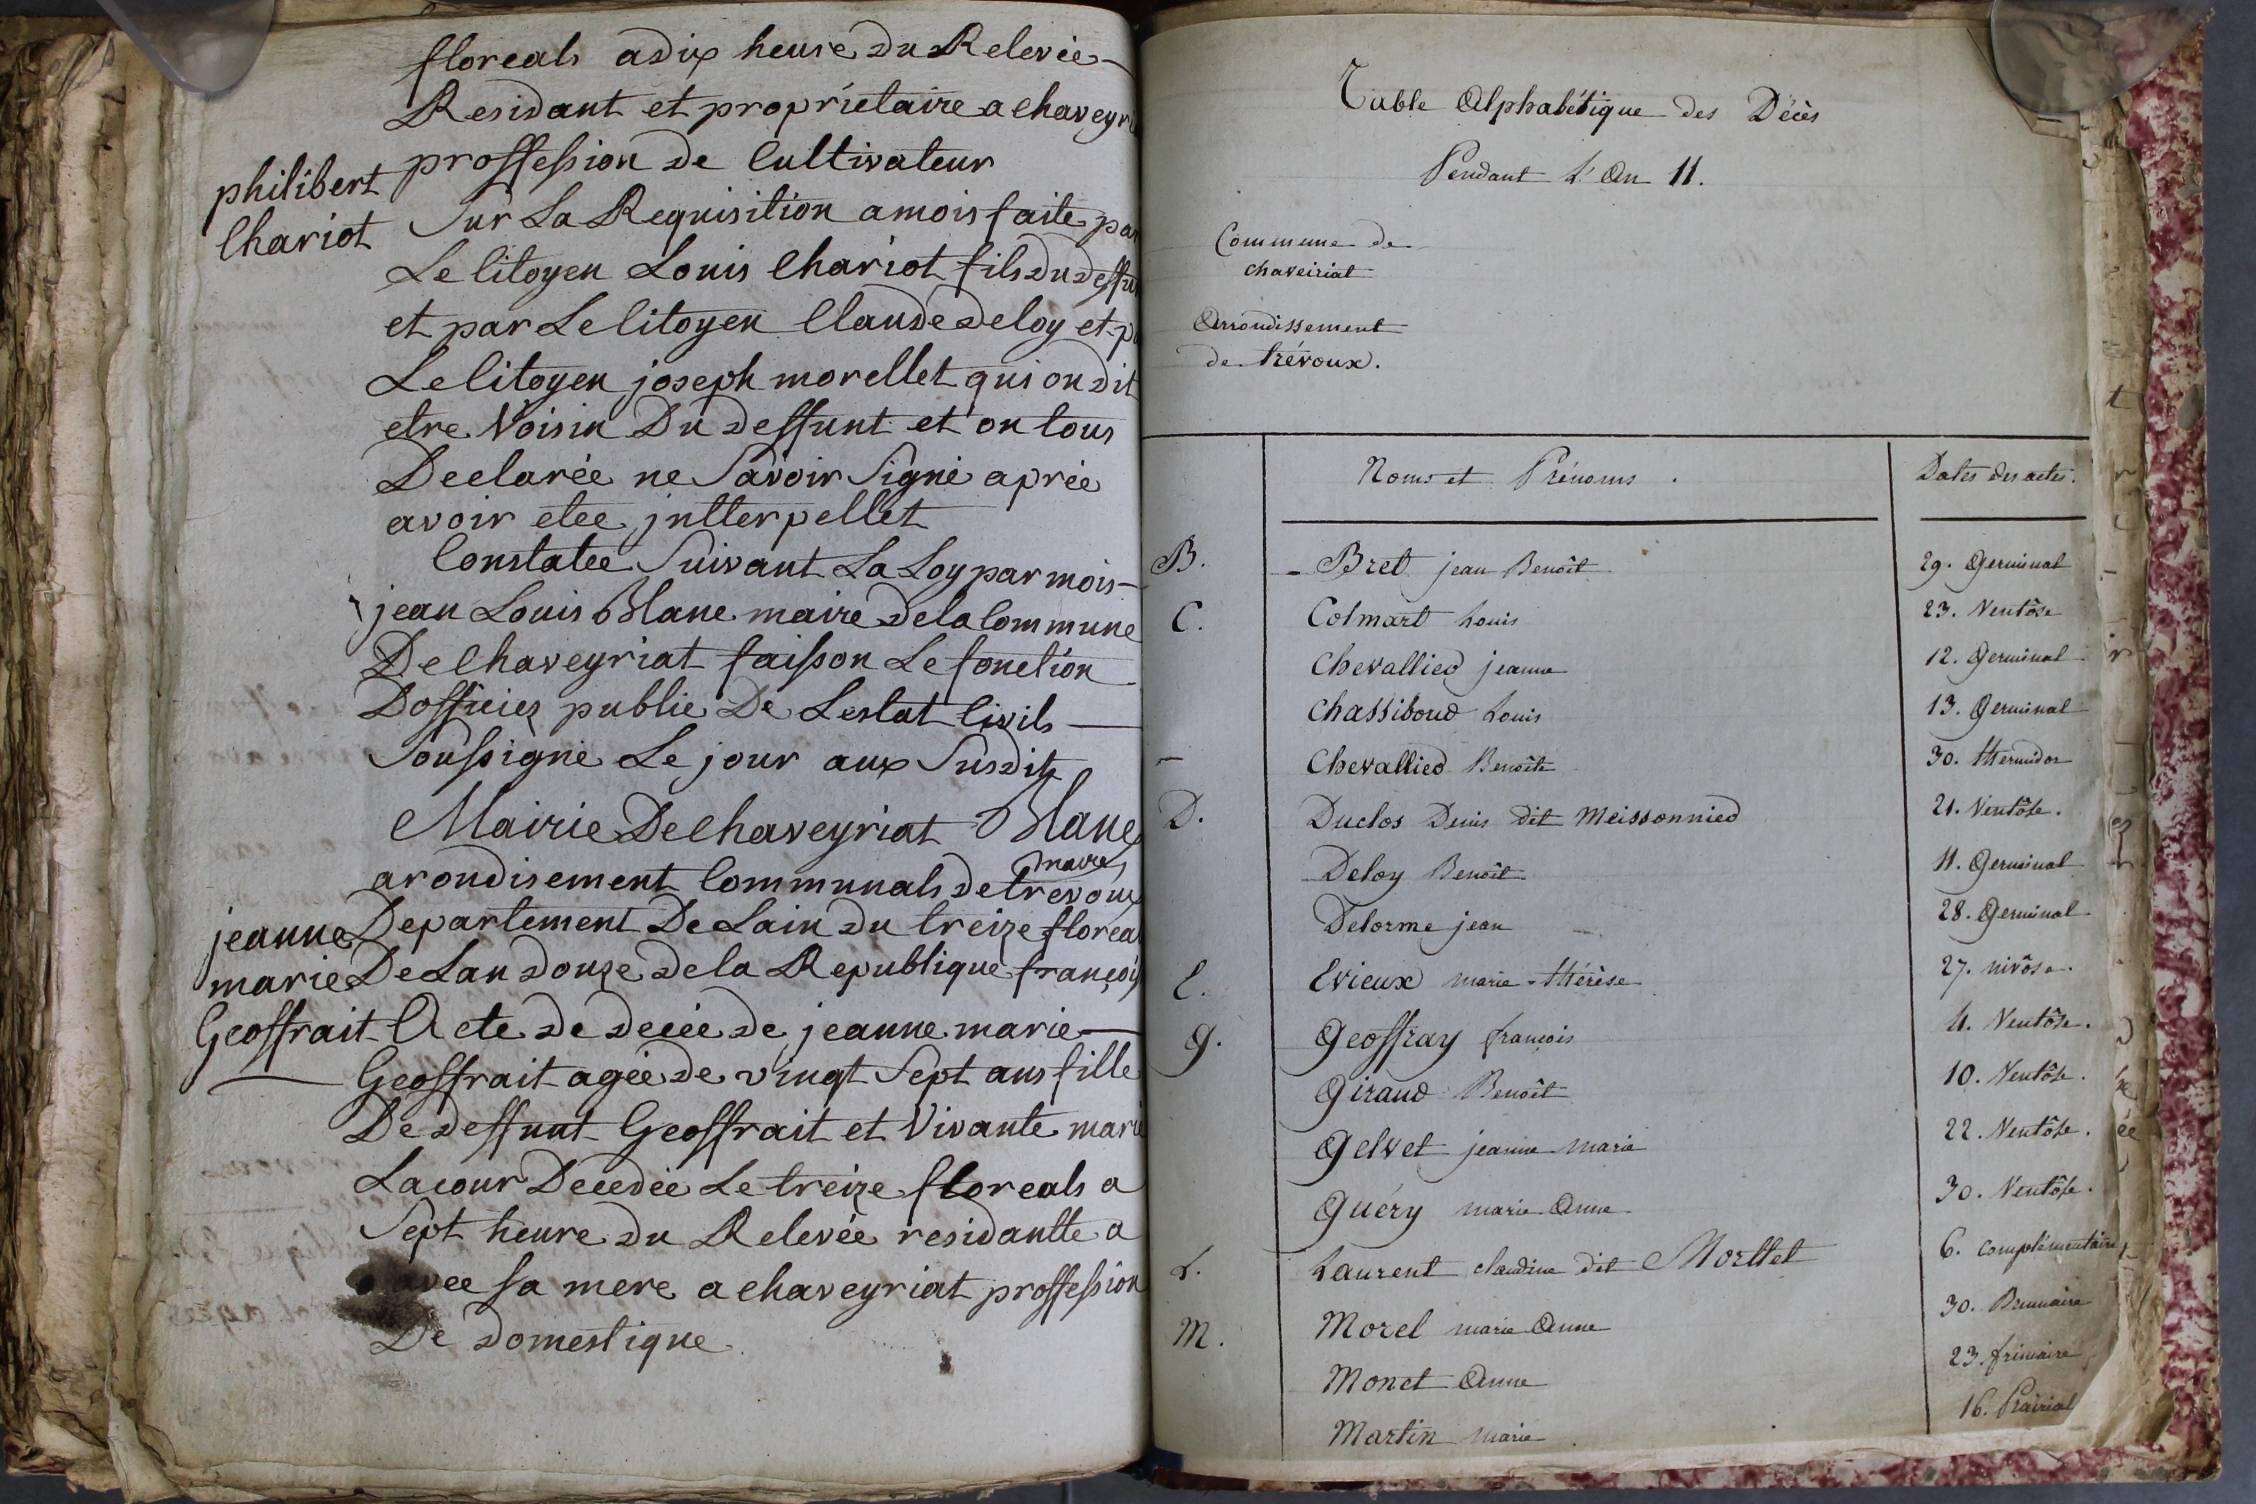 floreals a dix heure du Relevée
Residant et propriétaire a chavey
proffession de Cultivateur
philibert
Chariot
Sur La Requisition a mois faite par
Le Citoyen Louis Chariot fils du deffun
et par Le Citoyen Claude Deloy et p
Le Citoyen joseph morellet qui on dit
etre Voisin Du deffunt et on tous
Declarée ne Savoir Signé aprée
avoir etee jntterpellet
Constatee Suivant La Loy par mois
jean Louis Blanc maire de la Commune
De Chaveyriat faisson Le fonction
Dofficier public De Lestat Civils
Soussigné Le jour aux Susdit
Mairie De Chaveyriat Blanc
maire
arondisement Communals de trevoux
Departement De Lain du treize florea
De Lan douze de la Republique françois
jeanne
marie
Geoffrait
Acte de decée de jeanne marie
Geoffrait agée de vingt Sept ans fille
De deffunt Geoffrait et Vivante marie
Lacour Decedée Le treize floreals a
Sept heure du Relevée residantte a
avec sa mere a chaveyriat proffession
De domestique
Table Alphabétique des Décès
Pendant L'An 11.
Commune de
chaveiriat
Arrondissement
de trévoux.
Noms et Prénoms. Dates des actes.
B. Bret jean Benoît 29. Germinal
C. Colmart Louis 23. Ventôse
Chevallier jeanne 12. Germinal
Chassiboud Louis 13. Germinal
Chevallier Benoîte 30. thermidor
D. Duclos Denis dit Meissonnier 21. Ventôse.
Deloy Benoît 11. Germinal
Delorme jean 28. Germinal
E. Evieux marie-thérèse 27. nivôse.
G. Geoffray françois 4. Ventôse.
Giraud Benoît 10. Ventôse.
Gelvet jeanne marie 22. Ventôse.
Guéry marie Anne 30. Ventôse.
L. Laurent claudine dit Morttet 6. complémentaire
M. Morel marie Anne 30. Brumaire
Monet Anne 23. frimaire
Martin marie 16. Prairial